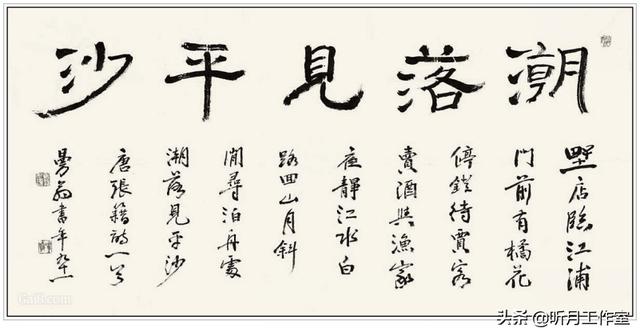 潮落見平沙
墅店臨江浦
門前有橘花
停鐙待賈客
賣酒與漁家
夜靜江水白
路回山月斜
閒尋泊舟處
潮落見平沙
唐張籍詩一首
曼翁書年九十一
头条@昕月工作室